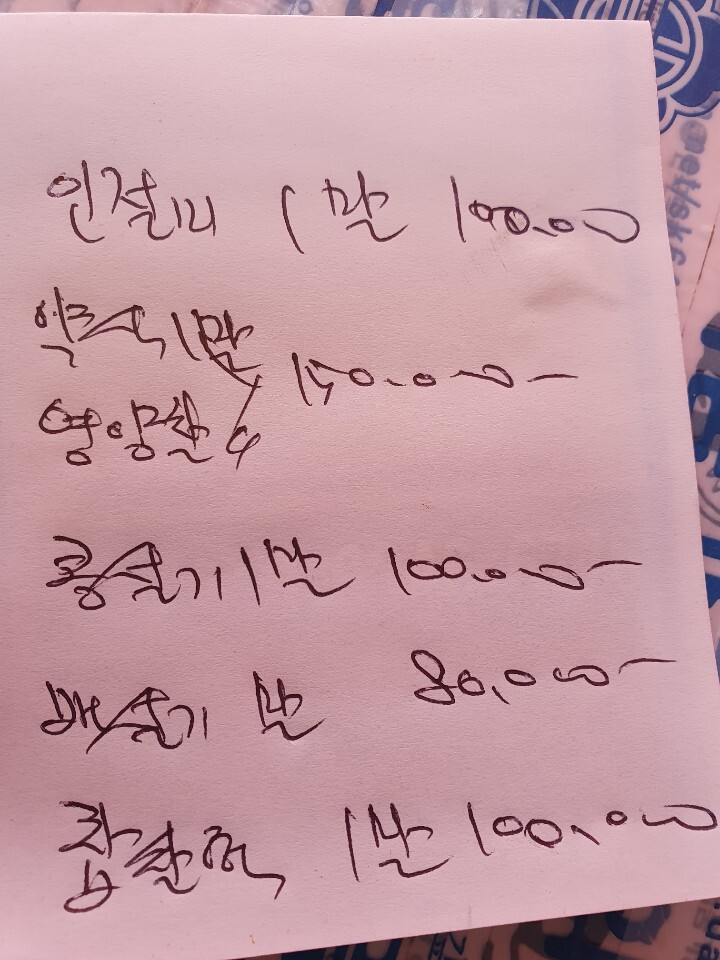 인절미 1말 100.000
약식 1말
영양찰 〃 150.000-
콩설기 1말 100.000-
백설기 말 80,000-
찹쌀떡 1말 100.000
net/sk